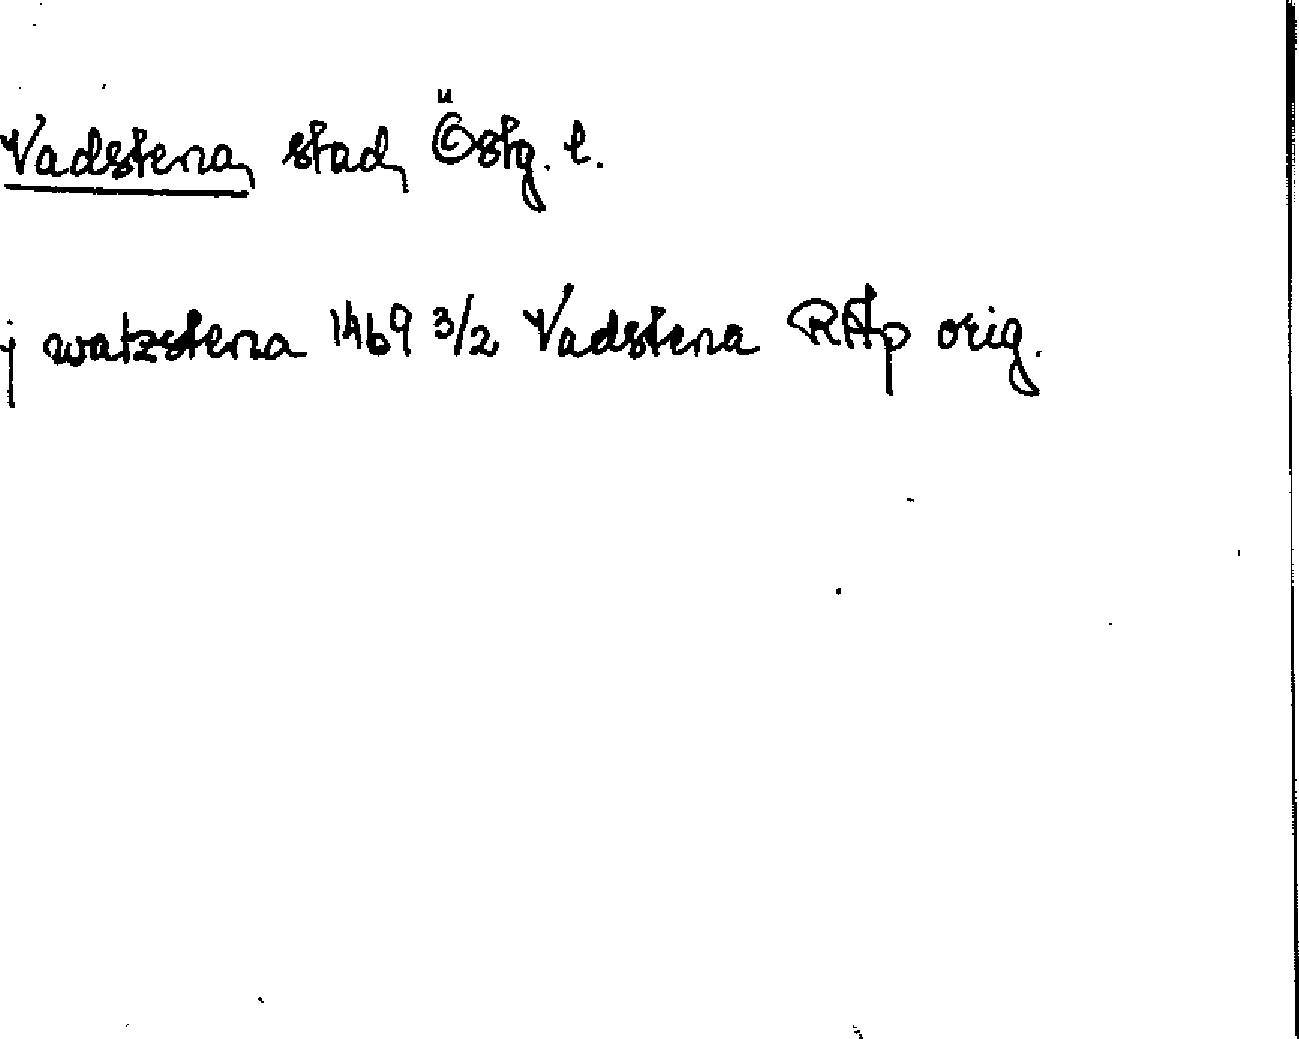 Vadstena, stad, Östg. l.
j watzstena 1469 3/2 Vadstena RAp orig.